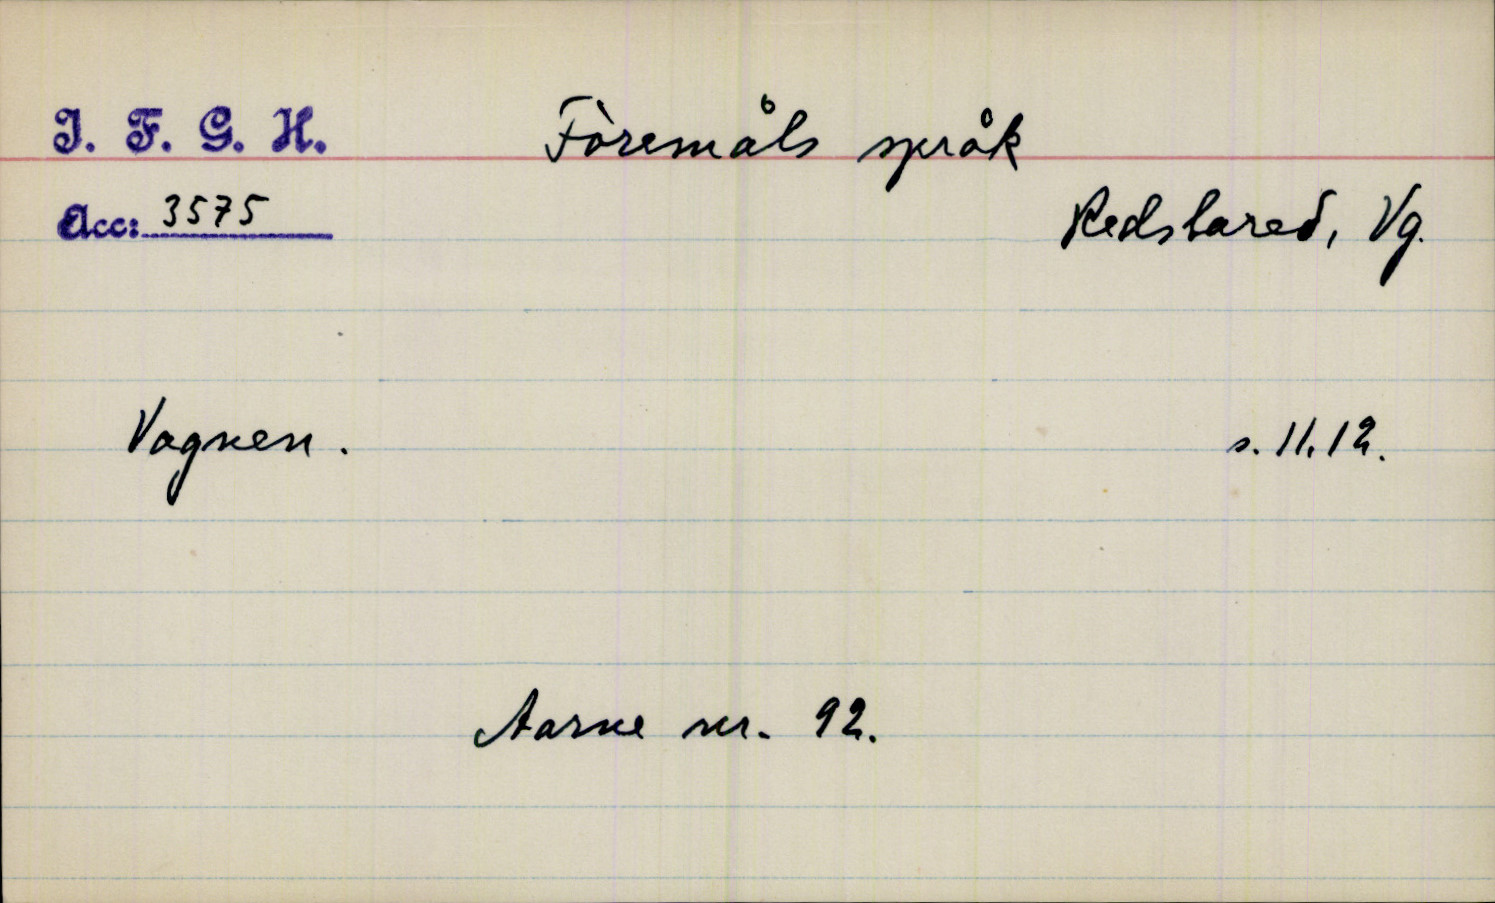 I. F. G. H.
Föremåls språk
Acc: 3575
Redslared, Vg.
Vagnen.
s. 11.12.
Aarne nr. 92.